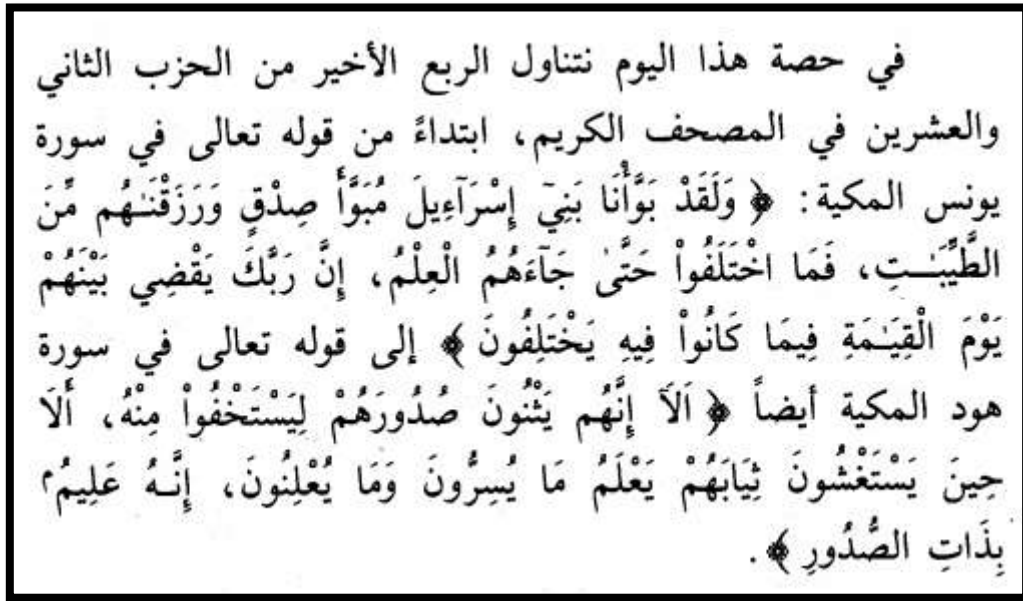 في حصة هذا اليوم نتناول الربع الأخير من الحزب الثاني
والعشرين في المصحف الكريم، ابتداءً من قوله تعالى في سورة
يونس المكية: ﴿ وَلَقَدْ بَوَّأْنَا بَنِيٓ إِسْرَآءِيلَ مُبَوَّأَ صِدْقٍ وَرَزَقْنَـٰهُم مِّنَ
الطَّيِّبَـٰتِ، فَمَا اخْتَلَفُواْ حَتَّىٰ جَآءَهُمُ الْعِلْمُ، إِنَّ رَبَّكَ يَقْضِي بَيْنَهُمْ
يَوْمَ الْقِيَـٰمَةِ فِيمَا كَانُواْ فِيهِ يَخْتَلِفُونَ ﴾ إلى قوله تعالى في سورة
هود المكية أيضاً ﴿ اَلَآ إِنَّهُم يَثْنُونَ صُدُورَهُمْ لِيَسْتَخْفُواْ مِنْهُ، أَلَا
حِينَ يَسْتَغْشُونَ ثِيَابَهُمْ يَعْلَمُ مَا يُسِرُّونَ وَمَا يُعْلِنُونَ، إِنَّـهُ عَلِيمُۢ
بِذَاتِ الصُّدُورِ ﴾.